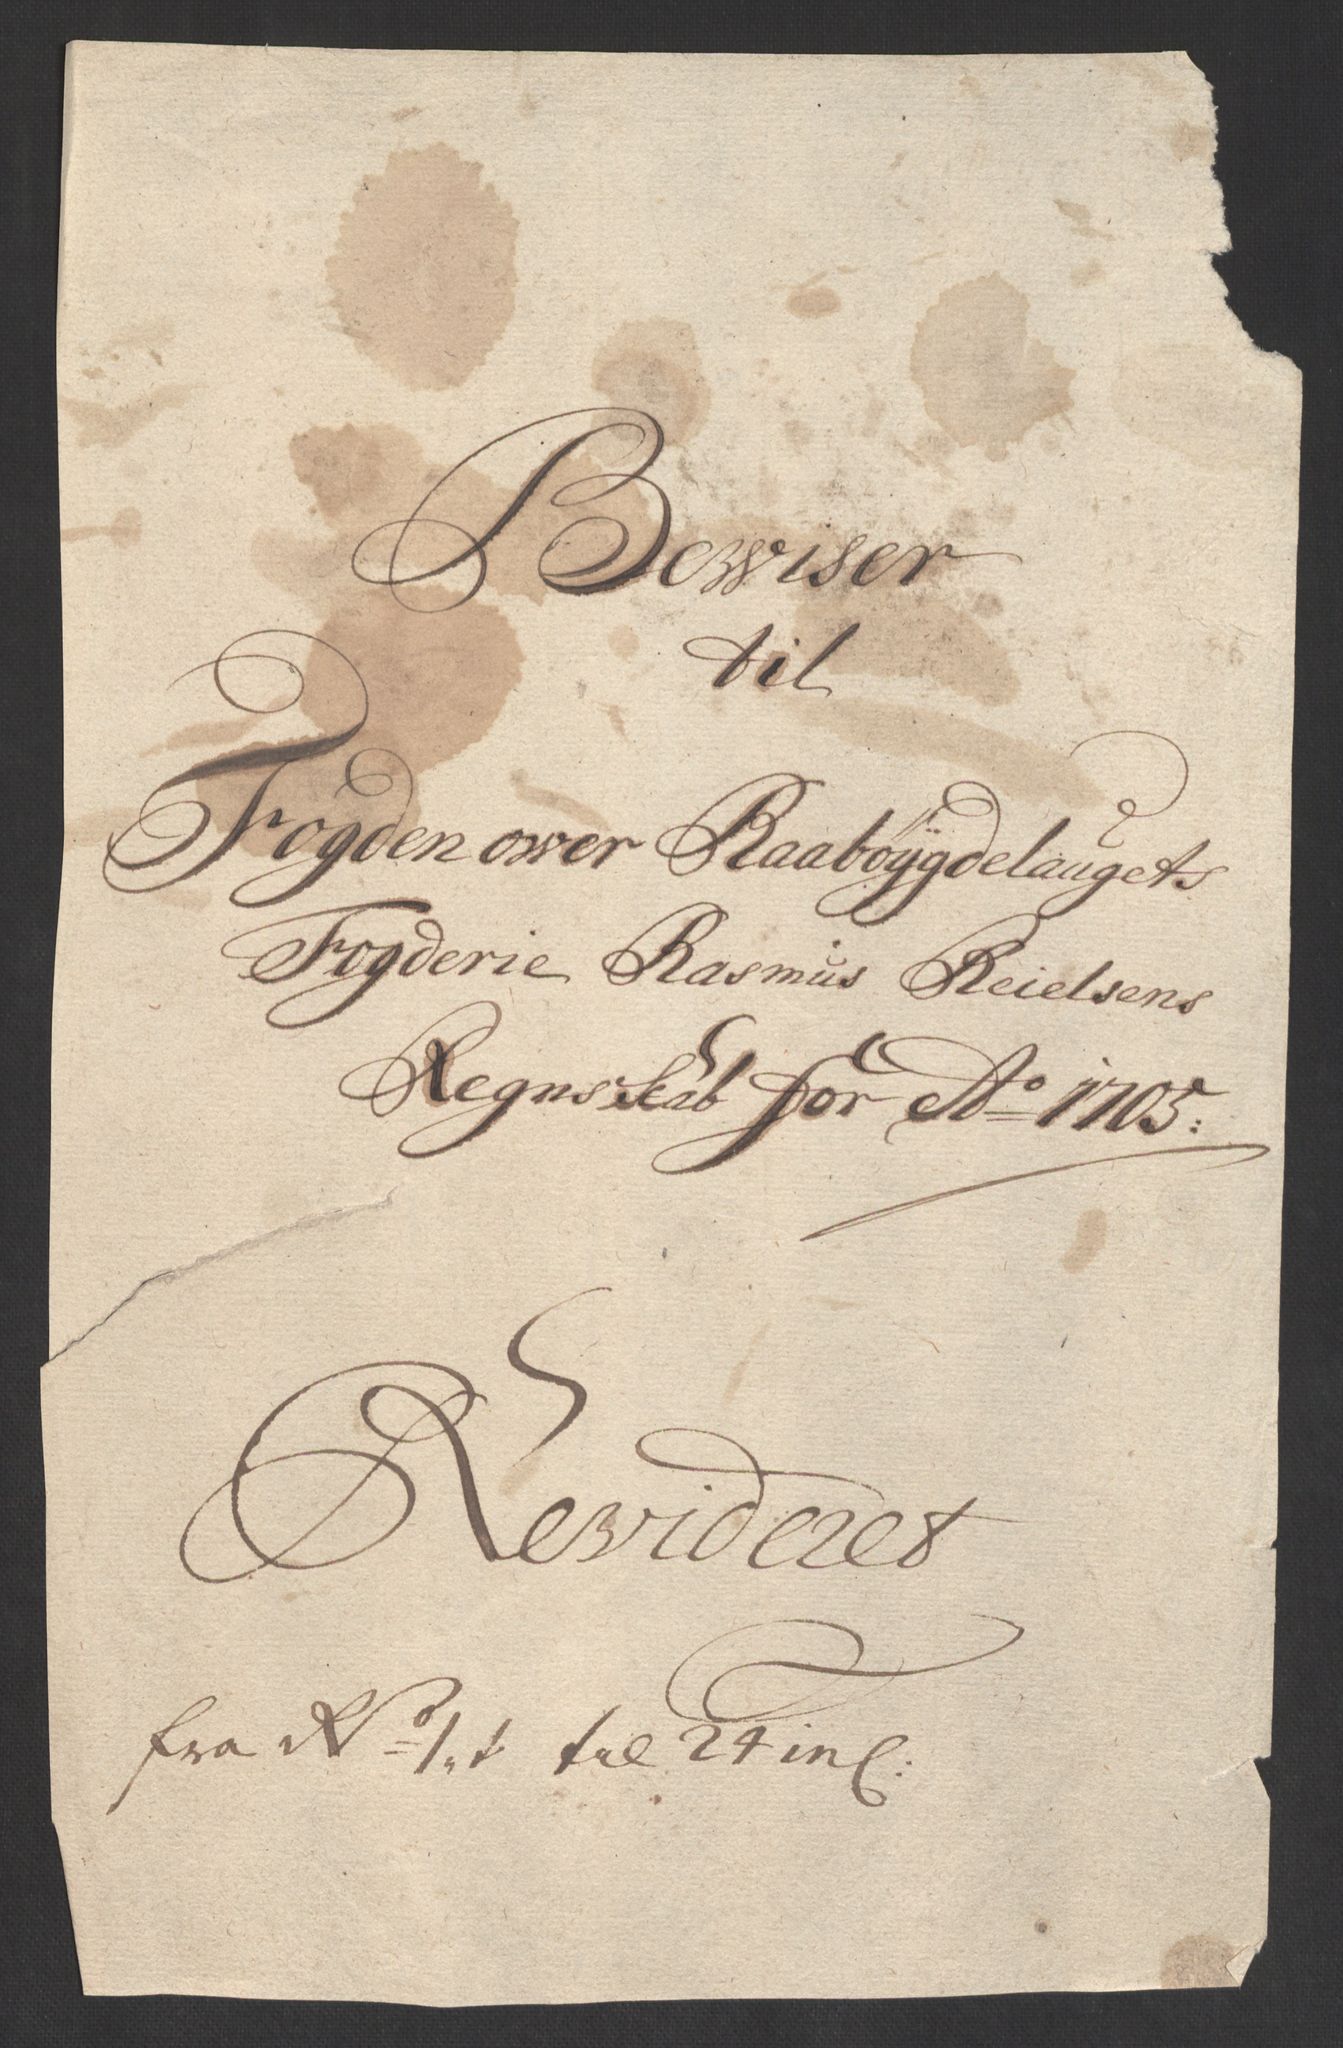 Bewiser
til
Fogden ower Raaböÿgdelaugets
Fogderie Rasmus Keielsens
Regnskab for Ao 1705:
Revideret
fra No 1 til 24 incl: